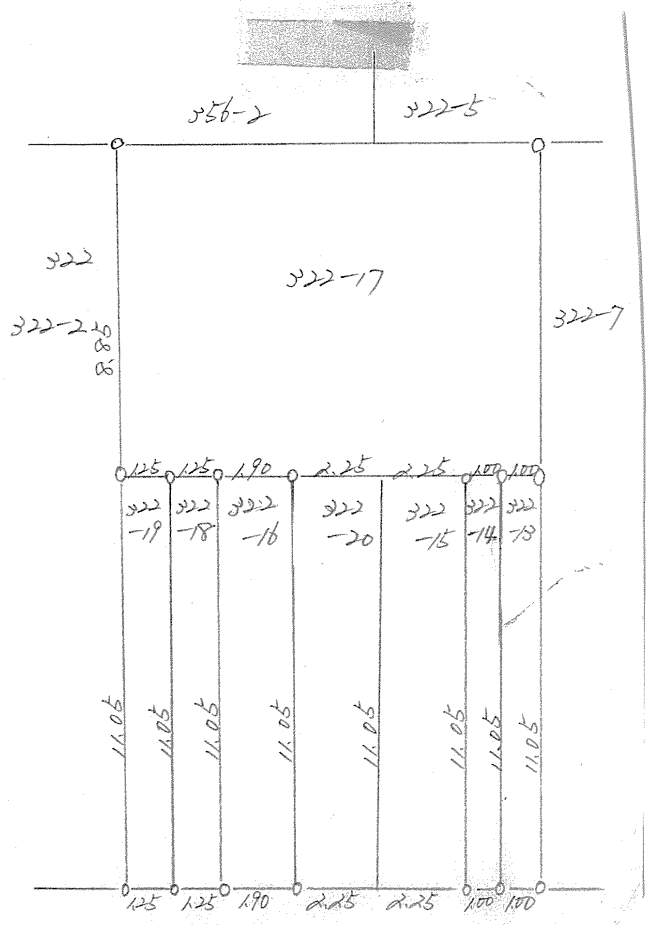 356-2 322-5
322
322-17
322-2
322-7
8.85
1.25 1.25 1.90 2.25 2.25 1.00 1.00
322 322 322 322 322 322 322
-19 -18 -16 -20 -15 -14 -13
11.05 11.05 11.05 11.05 11.05 11.05 11.05 11.05
1.25 1.25 1.90 2.25 2.25 1.00 1.00